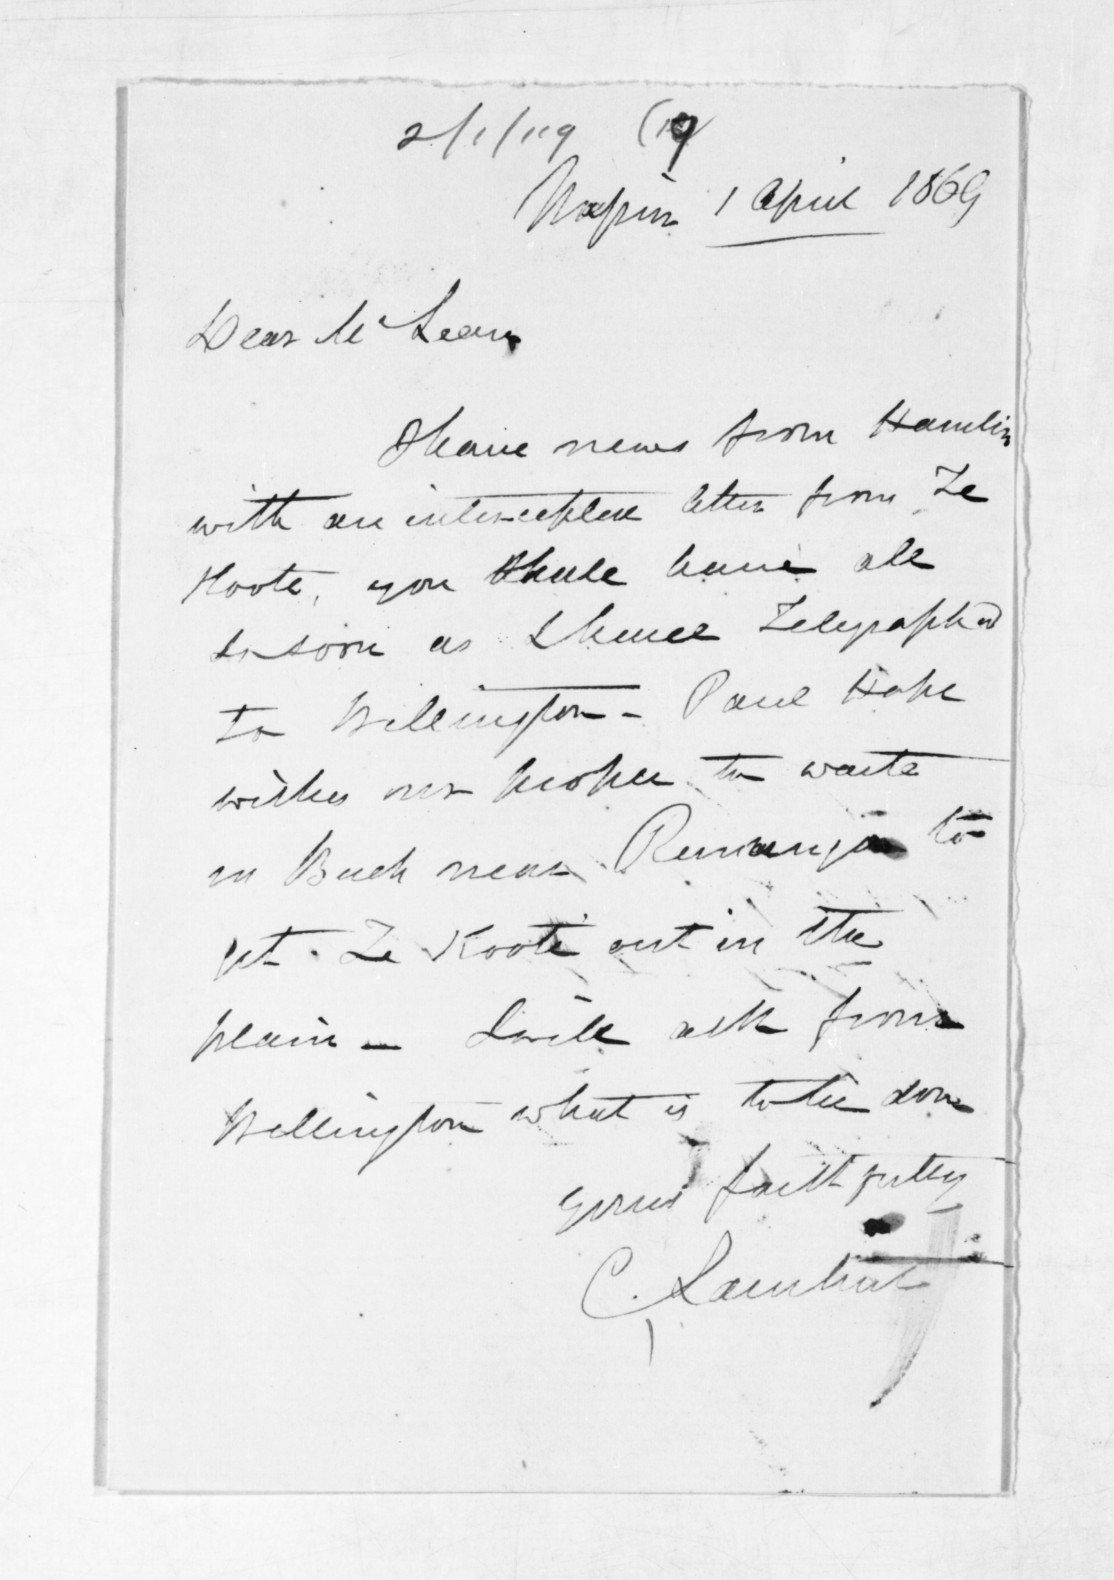 2/1/119 (19
Napier 1 April 1869
Dear McLean
I have news from Hamlin
with an intercepted letter from Te
Koote, you shall have all
so soon as I have Telegraphed
to Wellington - Paul Hope
wishes our people to waite
in Bush near to
get Te Koote out in the
plain - I will ask from
Wellington what is to be done
yours faithfully
C. Lambert